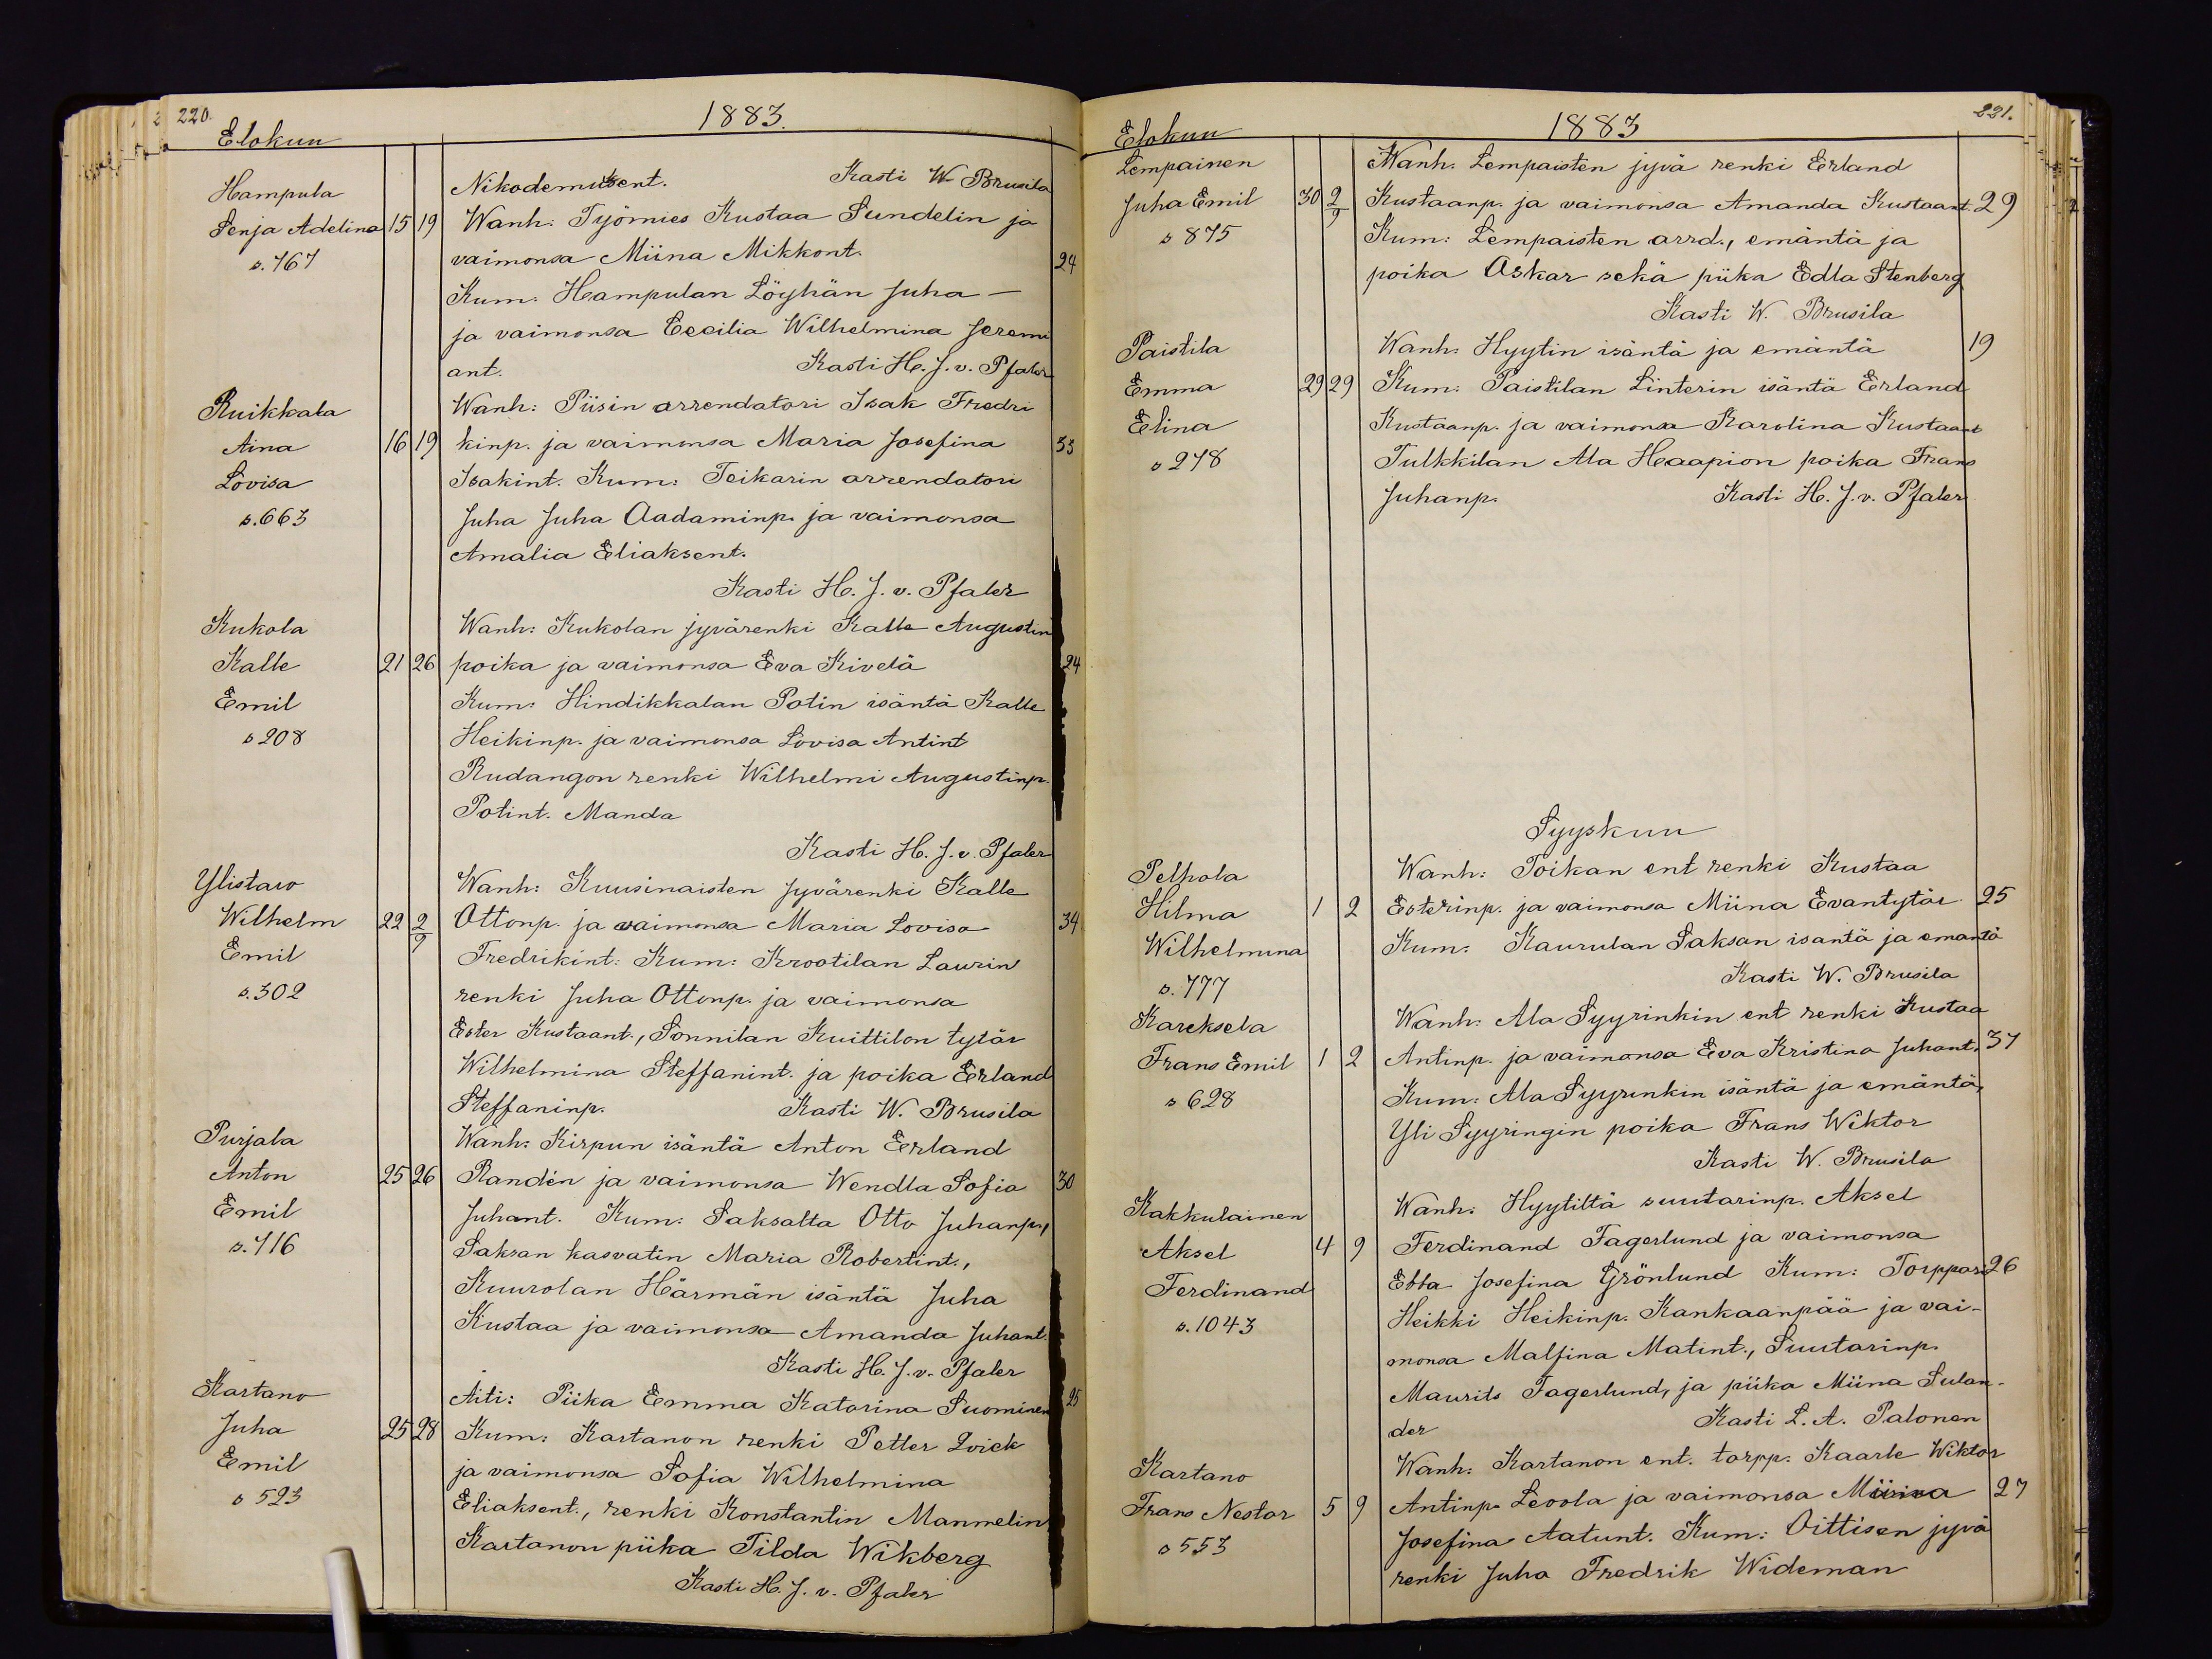 220.
1883.
Elokuu
Nikodemuksent. Kasti W. Brusila
Hampula
Senja Adelina 15 19 Wanh: Työmies Kustaa Sundelin ja
s. 767 vaimonsa Miina Mikkont. 24
Kum: Hampulan Löyhän Juha —
ja vaimonsa Cecilia Wilhelmina Jeremi
ant. Kasti H. J. v. Pfaler
Ruikkala Wanh: Piisin arrendatori Isak Fredri
Aina 16 19 kinp. ja vaimonsa Maria Josefina 33
Lovisa Isakint. Kum: Teikarin arrendatori
s. 663 Juha Juha Aadaminp. ja vaimonsa
Amalia Eliaksent.
Kasti H. J. v. Pfaler
Kukola Wanh: Kukolan jyvärenki Kalle Augustin
Kalle 21 26 poika ja vaimonsa Eva Kivelä 24
Emil Kum: Hindikkalan Potin isäntä Kalle
s 208 Heikinp. ja vaimonsa Lovisa Antint
Rudangon renki Wilhelmi Augustinp.
Potint. Manda
Kasti H. J. v. Pfaler
Ylistaro Wanh: Kuusinaisten Jyvärenki Kalle
Wilhelm 22 2/9 Ottonp. ja vaimonsa Maria Lovisa 34
Emil Fredrikint: Kum: Krootilan Laurin
s. 302 renki Juha Ottonp. ja vaimonsa
Ester Kustaant., Sonnilan Kuittilon tytär
Wilhelmina Steffanint. ja poika Erland
Steffaninp. Kasti W. Brusila
Purjala Wanh: Kirpun isäntä Anton Erland
Anton 25 26 Randén ja vaimonsa Wendla Sofia 30
Emil Juhant. Kum: Saksalta Otto Juhanp.,
s. 716 Saksan kasvatin Maria Robertint.,
Kuurolan Härmän isäntä Juha
Kustaa ja vaimonsa Amanda Juhant.
Kasti H. J. v. Pfaler
Kartano Äiti: Piika Emma Katarina Suominen 25
Juha 25 28 Kum: Kartanon renki Petter Qvick
Emil ja vaimonsa Sofia Wilhelmina
s 523 Eliaksent., renki Konstantin Mannelin
Kartanon piika Tilda Wikberg
Kasti H. J. v. Pfaler
221.
1883
Elokuu
Lempainen Wanh. Lempaisten jyvä renki Erland
Juha Emil 30 2/9 Kustaanp. ja vaimonsa Amanda Kustaant. 29
s 875 Kum: Lempaisten arrd., emäntä ja
poika Oskar sekä piika Edla Stenberg
Kasti W. Brusila
Paistila Wanh: Hyytin isäntä ja emäntä 19
Emma 29 29 Kum: Paistilan Linterin isäntä Erland
Elina Kustaanp. ja vaimonsa Karolina Kustaant
s 278 Tulkkilan Ala Haapion poika Frans
Juhanp. Kasti H. J. v. Pfaler
Syyskuu
Pelhola Wanh: Toikan ent renki Kustaa
Hilma 1 2 Esterinp. ja vaimonsa Miina Evantytär 25
Wilhelmina Kum: Kaurulan Saksan isantä ja emantä
s. 777 Kasti W. Brusila
Kareksela Wanh: Ala Syyrinkin ent renki Kustaa
Frans Emil 1 2 Antinp. ja vaimonsa Eva Kristina Juhant. 37
s 628 Kum: Ala Syyrinkin isäntä ja emäntä,
Yli Syyringin poika Frans Wiktor
Kasti W. Brusila
Kakkulainen Wanh: Hyytiltä suutarinp. Aksel
Aksel 4 9 Ferdinand Fagerlund ja vaimonsa
Ferdinand Ebba Josefina Grönlund Kum: Torppari 26
s. 1043 Heikki Heikinp. Kankaanpää ja vai-
monsa Malfina Matint., Suutarinp.
Maurits Fagerlund, ja piika Miina Sulan-
der Kasti L. A. Palonen
Kartano Wanh: Kartanon ent. torpp. Kaarle Wiktor
Frans Nestor 5 9 Antinp. Levola ja vaimonsa Miina 27
s 553 Josefina Aatunt. Kum: Oittisen jyvä
renki Juha Fredrik Wideman